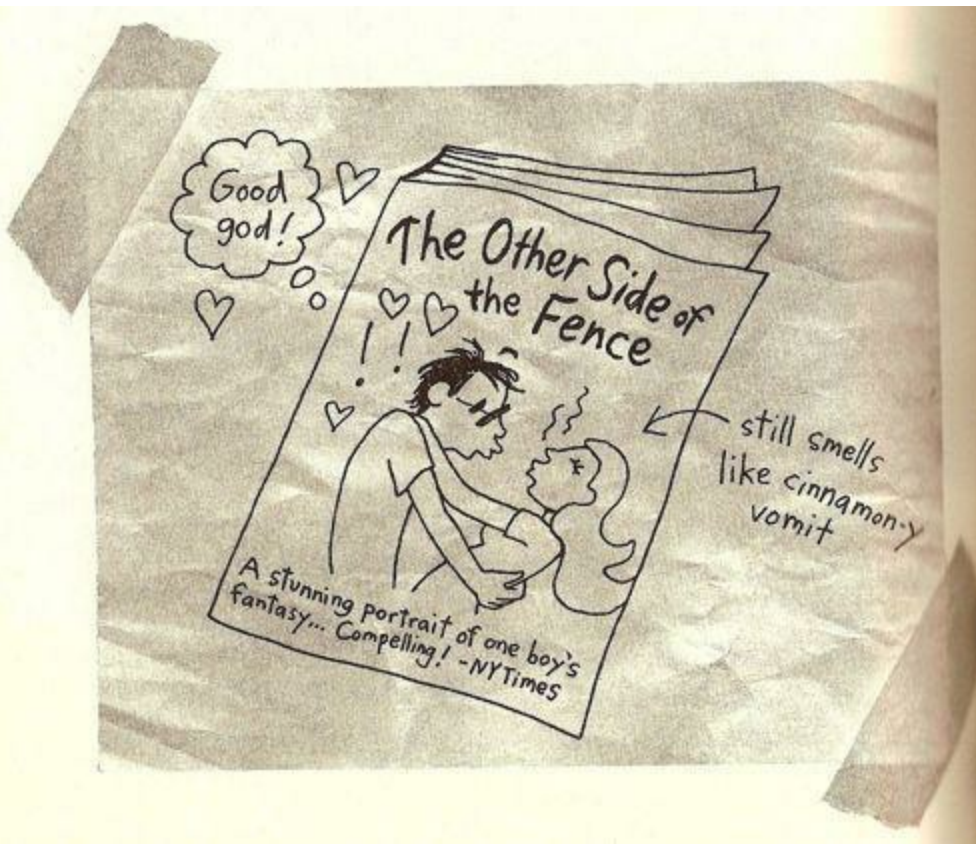 Good
god!
The Other Side of
the Fence
! !
still smells
like cinnamon-y
vomit
A stunning portrait of one boy's
fantasy... Compelling! -NY Times